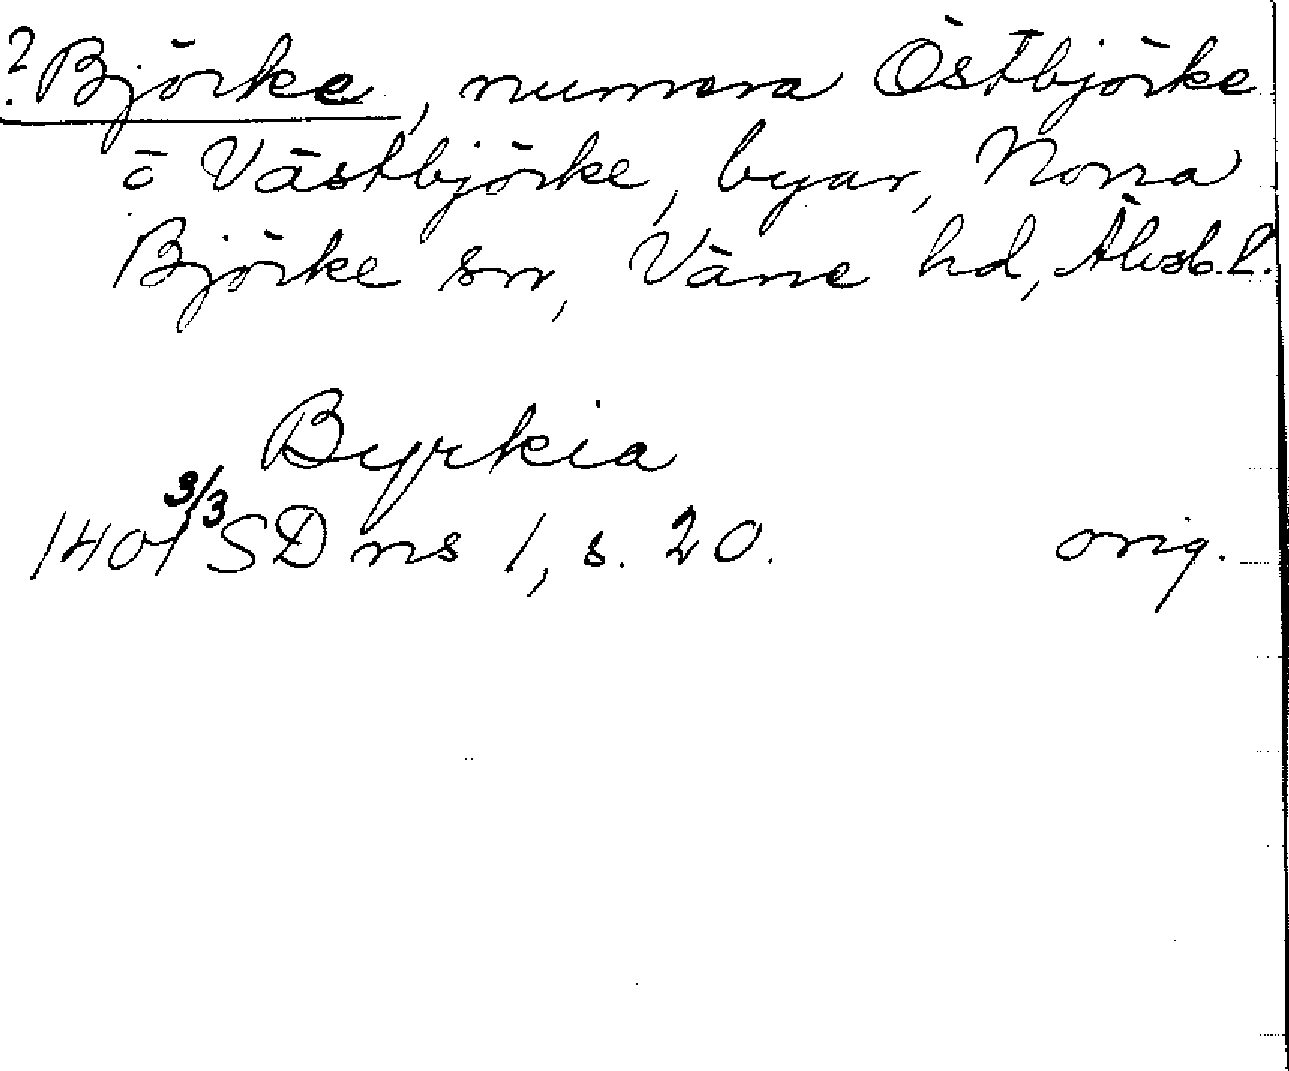 ? Björke, numera Östbjörke
o Västbjörke, byar, Norra
Björke sn, Väne hd, Älvsb. l.
Byrkia
1401 3/3 SD ns 1, s. 20. orig.